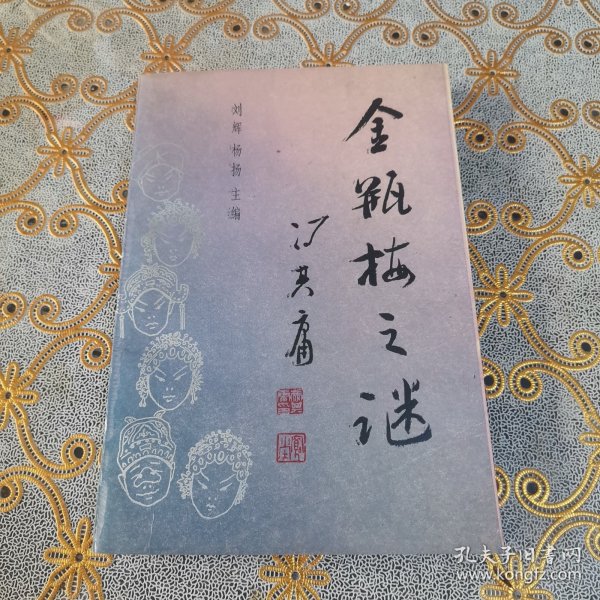 金瓶梅之谜
冯其庸
刘辉 杨扬 主编
孔夫子旧书网
www.kongfz.com